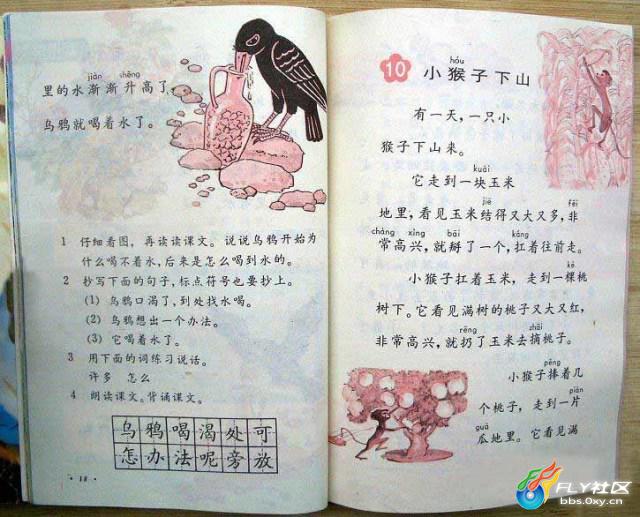 jiàn shēng
里的水渐渐升高了，
乌鸦就喝着水了。
1 仔细看图，再读读课文。说说乌鸦开始为
什么喝不着水，后来是怎么喝到水的。
2 抄写下面的句子，标点符号也要抄上。
(1) 乌鸦口渴了，到处找水喝。
(2) 乌鸦想出一个办法。
(3) 它喝着水了。
3 用下面的词练习说话。
许多 怎么
4 朗读课文。背诵课文。
乌鸦喝渴处可
怎办法呢旁放
· 18 ·
hóu
10 小猴子下山
有一天，一只小
猴子下山来。
kuài
它走到一块玉米
jiē fēi
地里，看见玉米结得又大又多，非
cháng xìng bāi káng
常高兴，就掰了一个，扛着往前走。
kē
小猴子扛着玉米，走到一棵桃
树下。它看见满树的桃子又大又红，
rēng zhāi
非常高兴，就扔了玉米去摘桃子。
pěng
小猴子捧着几
piàn
个桃子，走到一片
guā
瓜地里。它看见满
FLY社区
bbs.0xy.cn